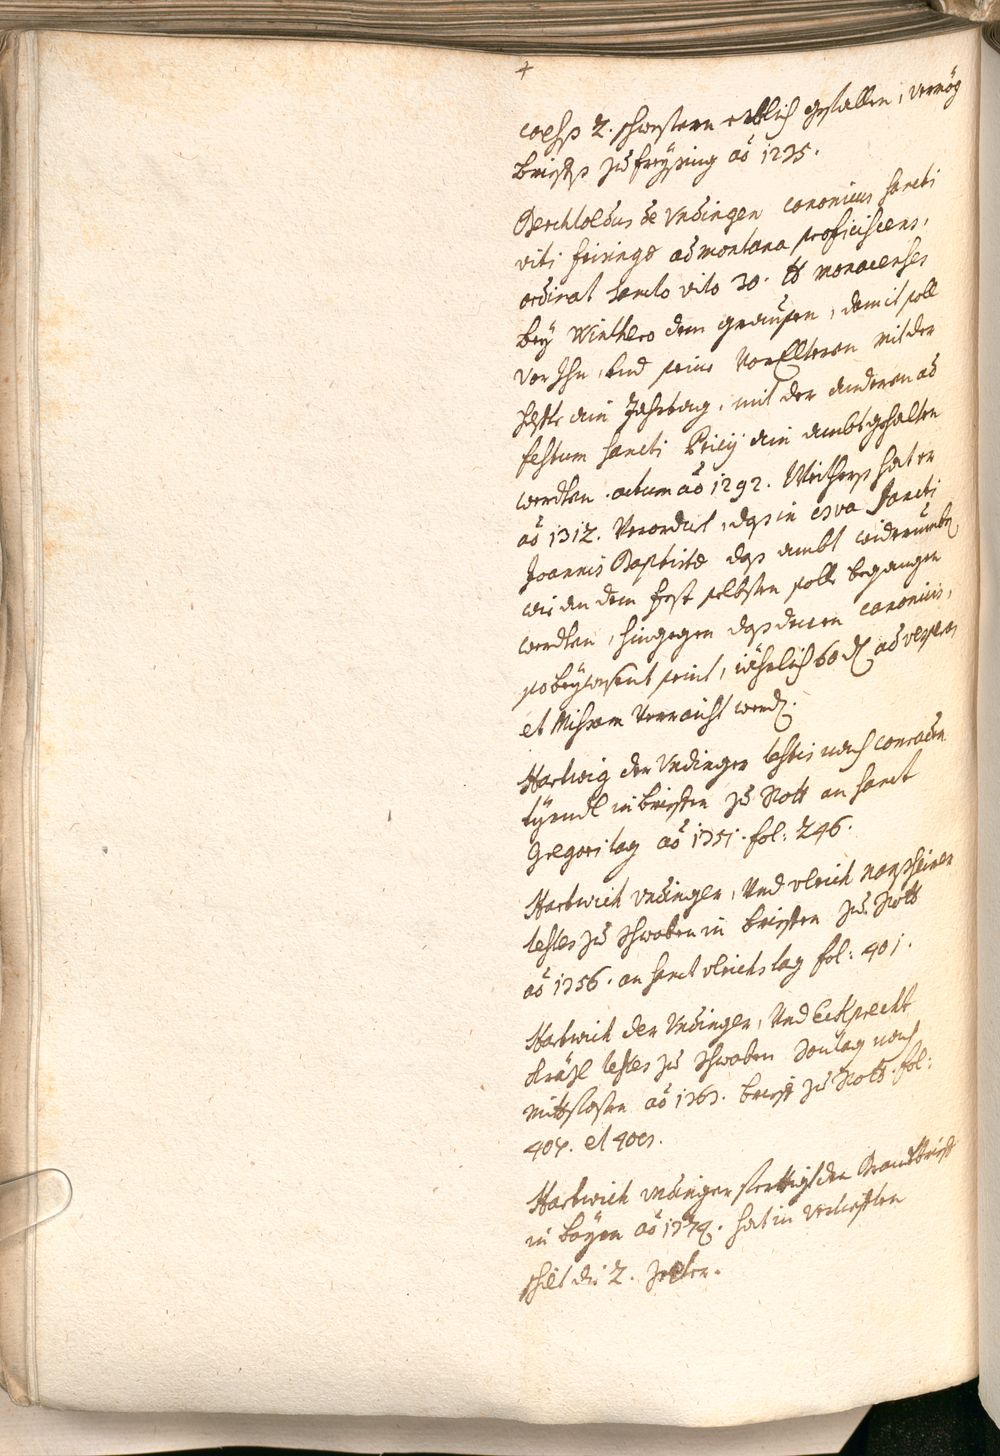 +
2. schwestern erblich gefallen, vermög
brieffs zu freysing aō 1235.
Berchtoldus de Undingen canonicus sancti
viti frisingæ ad montana proficiscens,
ordinat sancto vito 30. ℔ monacenses
bey Winthero dem, damit soll
vor Ihn, und seine VorElteren mit der
helffte ain Jahrtag, mit der anderen ad
festum sancti ain ambt gehalten
werdten. actum aō 1292. Weithers hat er
aō 1312. Verordnet, das in sancti
Joannis Baptistæ das ambt widerumb
wie an dem fest selbsten solle begangen
werdten, hingegen das denen canonicis,
so beywesent seint, jährlich 60 ₰ ad vesperas
et Missam Verraicht werd.
Hartwig der Undinger testis nach conraden
in brieffen zu Rott an sanct
Gregori tag aō 1351. fol: 246.
Hartwich undinger, Und vlrich
testes zu schwaben in brieffen zu Rott
aō 1356. an sanct vlrichs tag fol: 401.
Hartwich der Undinger, Und Eckprecht
testes zu schwaben Sontag nach
Mittfasten aō 1363. brieff zu Rott. fol:
407. et
Hartwich undinger ferttigt den Brandtbrieff
in bayrn aō 1374. hat in
schilt die 2.